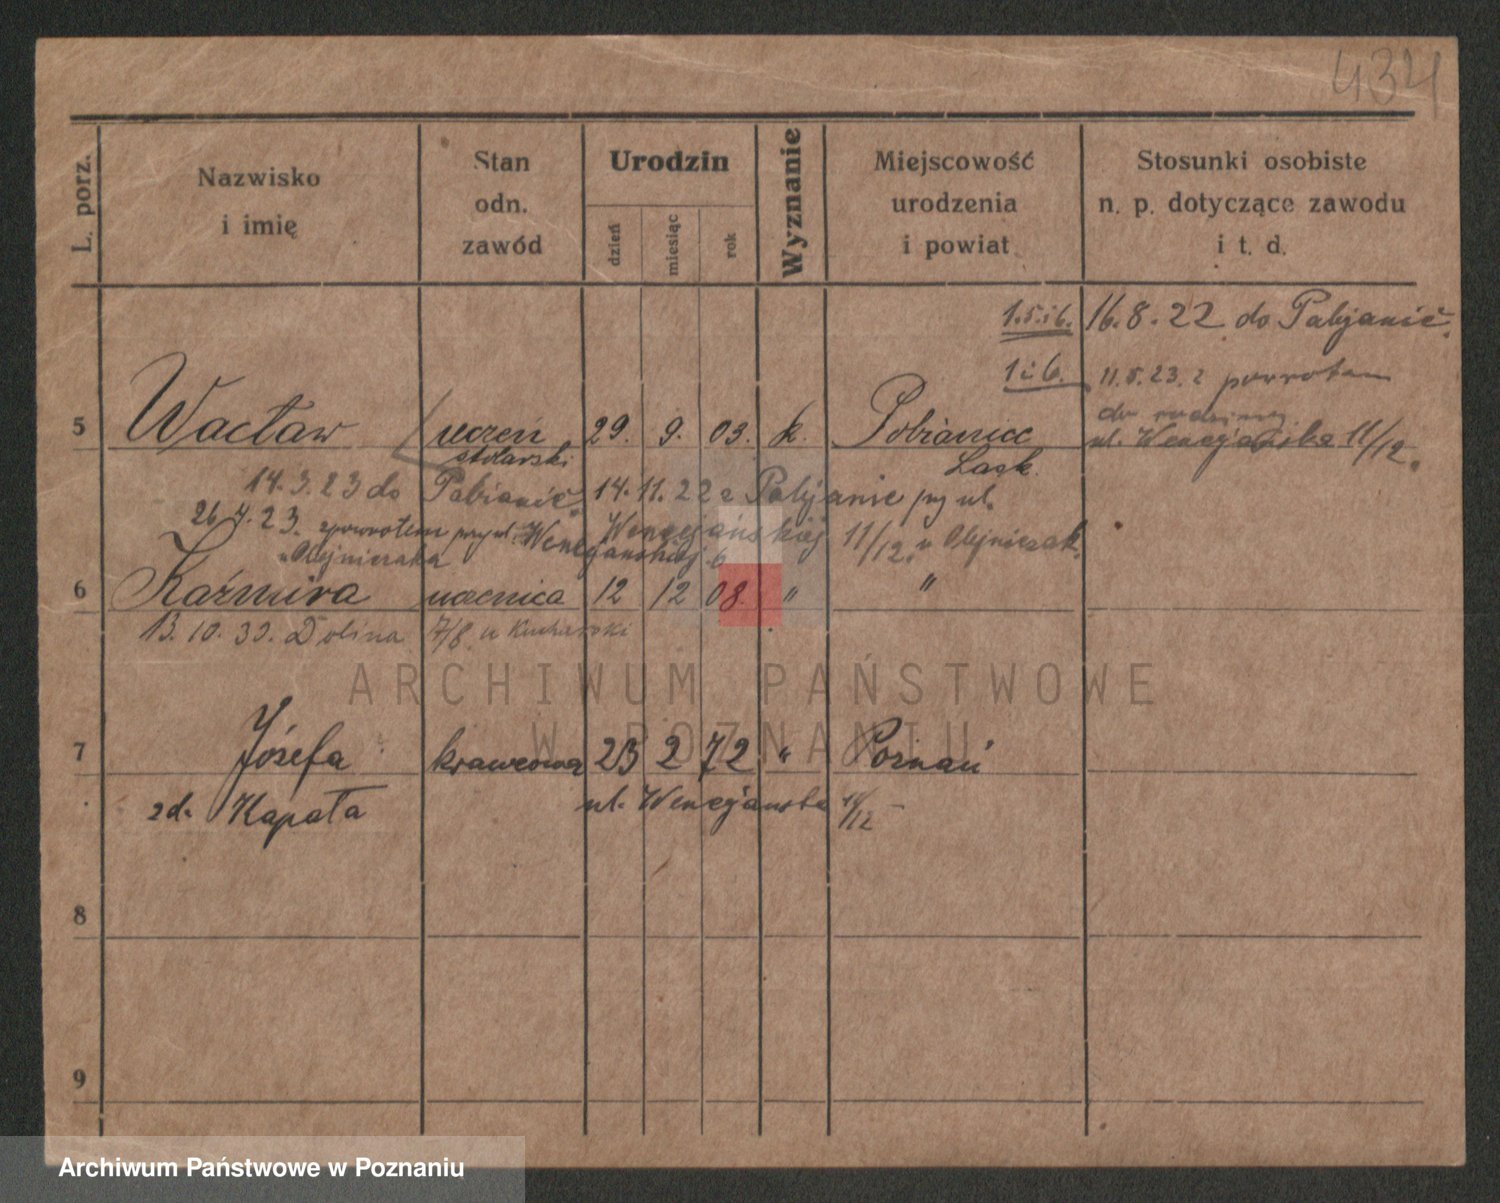 434
L. porz.
Nazwisko
i imię
Stan
odn.
zawód
Urodzin
dzień
miesiąc
rok
Wyznanie
Miejscowość
urodzenia
i powiat
Stosunki osobiste
n. p. dotyczące zawodu
i t. d.
1.5.i6. 16.8.22 do Pabjanic.
1 i 6. 11.5.23. z powrotem
do rodziny
5 Wacław uczeń 29. 9. 03. k. Pabianice ul. Wenecjańska 11/12.
stolarski Łask.
14.3.23 do Pabianic. 14.11.22 z Pabjanic przy ul.
26.4.23. zpowrotem przy ul. Wenecjańskiej 11/12. u Olejniczak.
u Olejniczaka Wenecjańskiej 6
6 Kaźmira uczenica 12 12 08. " "
13.10.33. Dolina 7/8 u Kucharski
ARCHIWUM PAŃSTWOWE
W POZNANIU
7 Józefa krawcowa 23 2 72 " Poznań
zd. Kapała ul. Wenecjańska 11/12
8
9
Archiwum Państwowe w Poznaniu